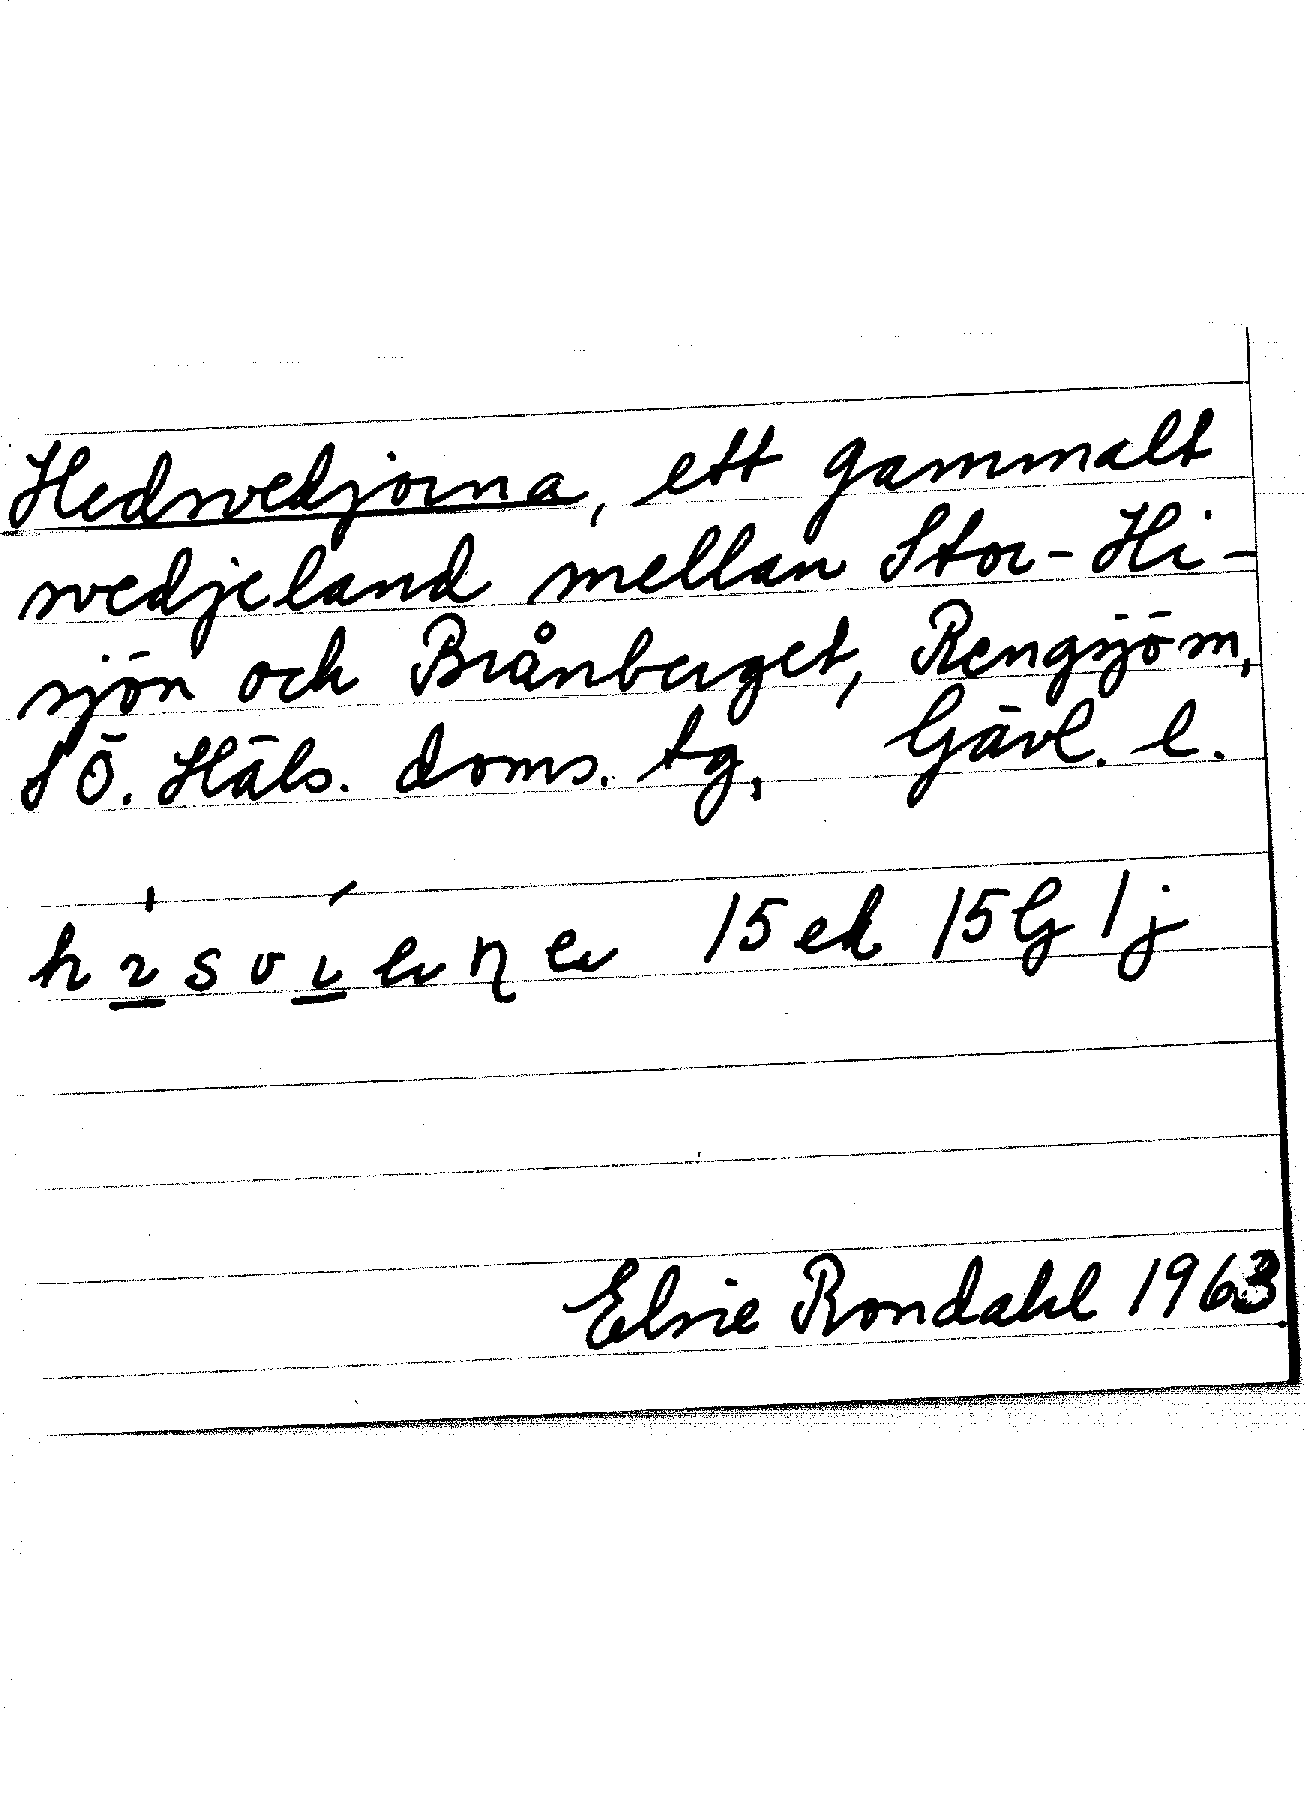 Hedsvedjorna, ett gammalt
svedjeland mellan Stor-Hi-
sjön och Brånberget, Rengsjöm,
SÖ. Häls. doms. tg, Gävl. l.
15 ed 15G 1j
Elsie Rondahl 1963.